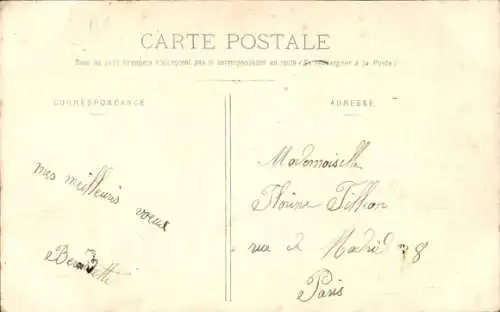 CARTE POSTALE
Tous les pays étrangers n'acceptent pas la correspondance au recto (Se renseigner à la Poste)
CORRESPONDANCE
ADRESSE
mes meilleurs voeux
Bernadette
Mademoiselle
rue de Madrid n° 8
Paris